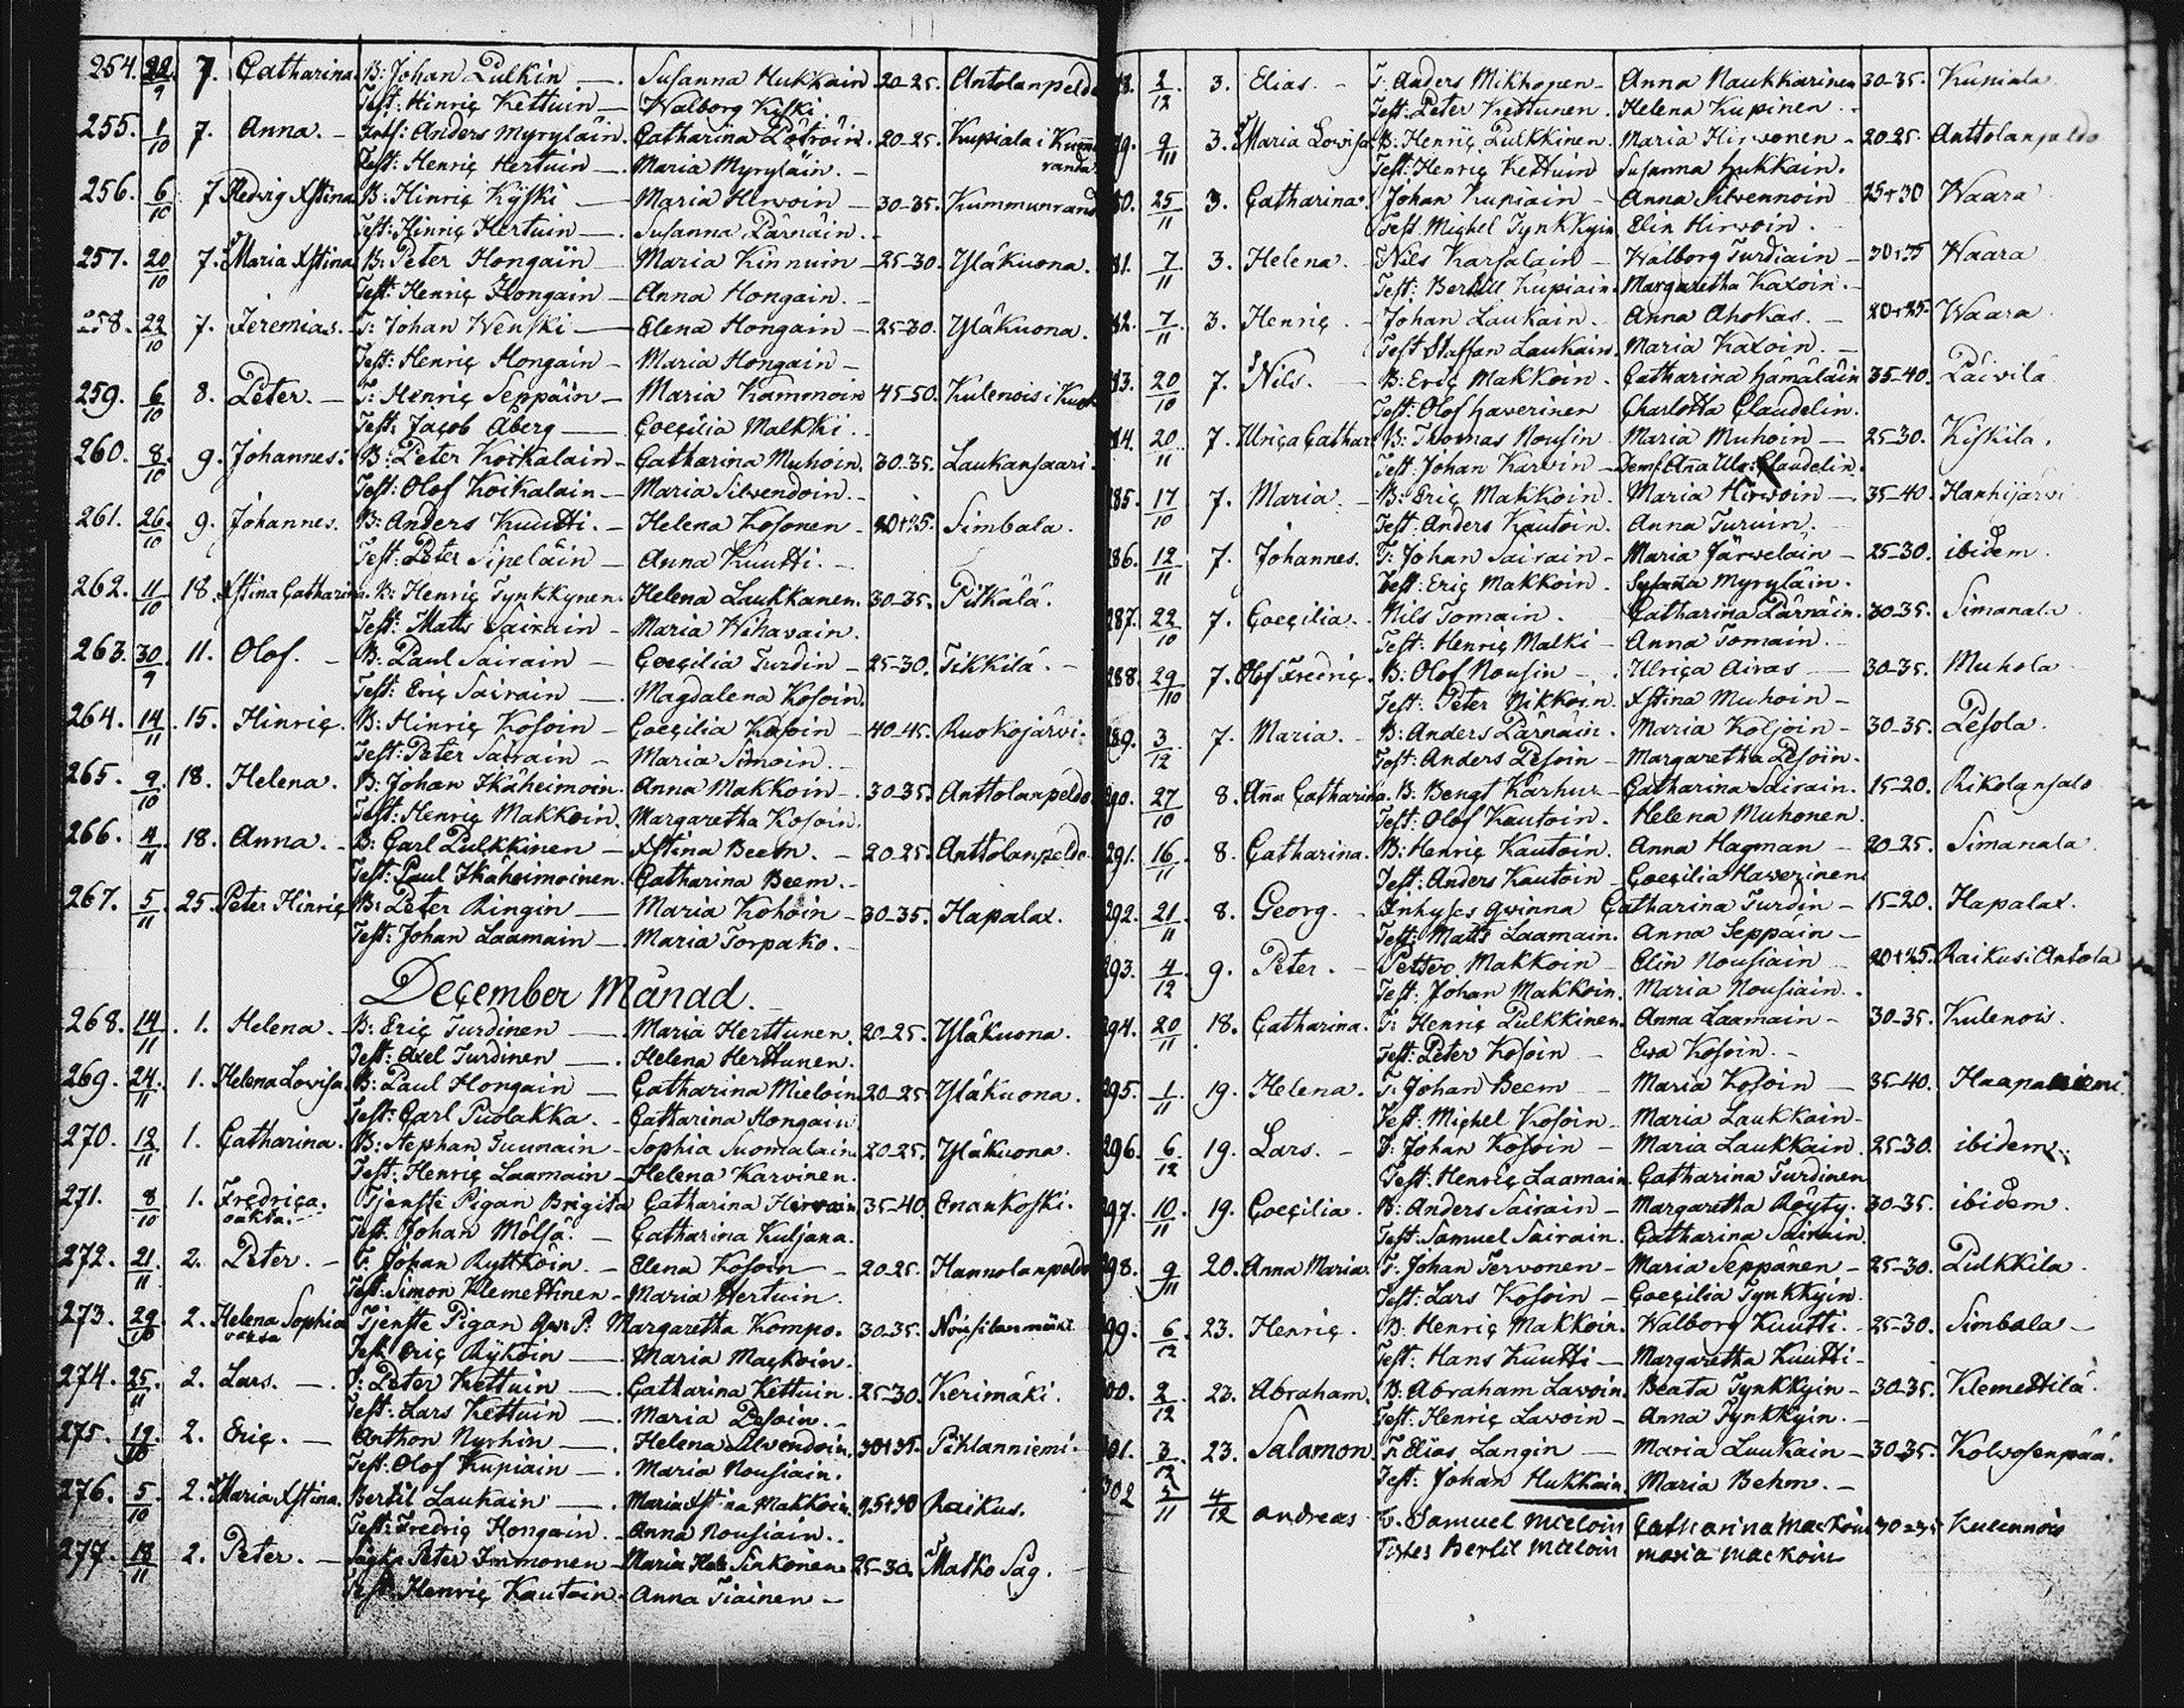 254. 22/9 7. Catharina. B: Johan Pulkin —. Susanna Hukkain 20-25. Antolanpeldo
Test: Hinric Kettuin — Walborg Kyski.
255. 1/10 7. Anna. - Anders Myryläin. Catharina Peträin. 20-25. Kupiala i Kum̄u
Test: Henric Hertuin —. Maria Myryläin. - randa.
256. 6/10 7 Hedvig Xstina B: Hinric Kyski — Maria Hirvoin — 30-35. Kummunrand
Test: Hinric Hertuin —. Susanna Pärnäin. -
257. 20/10 7. Maria Xstina B: Peter Hongain — Maria Kinnuin — 25-30. Yläkuona.
Test: Henric Hongain — Anna Hongain. -
258. 22/10 7. Jeremias. - T: Johan Wenski — Elena Hongain — 25-30. Yläkuona.
Test: Henric Hongain — Maria Hongain —
259. 6/10 8. Peter. — T: Henric Seppäin — Maria Kammoin 45-50. Kulenois i
Test: Jacob Åberg —. Coecilia Malkki. -
260. 8/10 9. Johannes. B: Peter Koikalain — Catharina Muhoin. 30-35. Laukansaari.
Test: Olof Koikalain — Maria Silvendoin. -
261. 26/10 9. Johannes. B: Anders Kuutti. — Helena Kosonen — 20+25. Simbala.
Test: Peter Sipeläin — Anna Kuutti. -
262. 11/10 18. Xstina Catharina. B: Henric Tynkkynen. Helena Laukkanen. 30-35. Pitkälä.
Test: Matts Sairain — Maria Wihavain.
263. 30/9 11. Olof. - B: Paul Sairain — Coecilia Turdin — 25-30. Tikkilä. -
Test: Eric Sairain —. Magdalena Kosoin.
264. 14/11 15. Hinric. B: Hinric Kosoin — Coecilia Kosoin — 40-45. Ruokojärvi.
Test: Peter Sairain — Maria Simoin. —
265. 9/10 18. Helena. B: Johan Ikäheimoin. Anna Makkoin —. 30-35. Anttolanpeldo.
Test: Henric Makkoin. Margaretha Kosoin.
266. 4/11 18. Anna. - B: Carl Pulkkinen — Xstina Beem. — 20-25. Anttolanpeldo
Test: Paul Ikäheimoinen. Catharina Beem. -
267. 5/11 25. Peter Hinric B: Peter Ringin — Maria Kohoin — 30-35. Hapalax.
Test: Johan Laamain —. Maria Torpako. -
December Månad. -
268. 14/11 1. Helena. - B: Eric Turdinen —. Maria Herttunen. 20-25. Yläkuona.
Test: Axel Turdinen —. Helena Herttunen.
269. 24/11 1. Helena Lovisa. B: Paul Hongain — Catharina Mieloin 20-25. Yläkuona.
Test: Carl Puolakka. - Catharina Hongain
270. 12/11 1. Catharina. B: Stephan Tuunain — Sophia Suomalain 20-25. Yläkuona.
Test: Henric Laamain — Helena Karvinen.
271. 8/10 1. Fredrica. Tjenste Pigan Brigita Catharina Hirvoin 35-40. Enankoski.
oäkta. Test: Johan Mölsä. — Catharina Kuljana.
272. 21/11 2. Peter. - T. Johan Ryttköin. - Elena Kosoin — 20-25. Hannolanpeldo
Test: Simon Klemettinen — Maria Hertuin.
273. 29/10 2. Helena Sophia Tjenste Pigan Margaretha Kompo. 30-35.
oäkta Test: Eric Rykoin —. Maria Mackoin.
274. 25/11 2. Lars. —. T: Peter Kettuin —. Catharina Kettuin. 25-30. Kerimäki.
Test: Lars Kettuin —. Maria Pesoin. -
275. 19/10 2. Eric. — Anthon Nyrhin —. Helena Silvendoin. 30+35. Pihlanniemi.
Test: Olof Kupiain —. Maria Nousiain.
276. 5/10 2. Maria Xstina. Bertil Laukain —. Maria Xstina Makkoin. 25+30 Raikus.
Test: Fredric Hongain. - Anna Nousiain. -
277. 18/11 2. Peter. — Peter Immonen — Maria Hel: Sinkonen 25-30. Matko Såg.
Test: Henric Kautoin. Anna Tiainen —
78. 2/12 3. Elias. - T. Anders Mikhonen — Anna Naukkarinen 30-35. Kupiala.
Test: Peter Kettunen. Helena Kupinen. -
79. 9/11 3. Maria Lovisa B: Henric Pulkkinen. Maria Hirvonen — 20-25. Anttolanpeldo
Test: Henric Kettuin Susanna Hukkain.
80. 25/11 3. Catharina. Johan Kupiain — Anna Silvennoin 25+30 Waara
Test Michel Tynkkyin. Elin Hirvoin.
81. 7/11 3. Helena. - Nils Karsalain — Walborg Turdiain — 30+35 Waara
Test: Bertill Kupiain. Margaretha Kaxoin. -
82. 7/11 3. Henric. - Johan Laukain. Anna Ahokas. — 20+25. Waara
Test Staffan Laukain. Maria Kaxoin. —
83. 20/10 7. Nils. — B: Eric Makkoin. Catharina Hämäläin 35-40. Päivilä
Test: Olof Haverinen Charlotta Claudelin.
84. 20/11 7. Ulrica Cathar: B: Thomas Nousin Maria Muhoin — 25-30. Kiskilä.
Test: Johan Karvin — Dems: An̄a Ulr: Claudelin.
285. 17/10 7. Maria. - B: Eric Makkoin. Maria Hirvoin —. 35-40. Hanhijärvi
Test: Anders Kautoin. Anna Turuin.
286. 12/11 7. Johannes. T: Johan Sairain — Maria Järveläin — 25-30. ibidem.
Test: Eric Makkoin. Susan̄a Myryläin.
287. 22/10 7. Coecilia. Nils Tomain. Catharina Pärnäin. 30-35. Simanala
Test: Henric Malki — Anna Tomain.
288. 29/10 7. Olof Fredric. B: Olof Nousin —. Ulrica Airas — 30-35. Muhola
Test: Peter Nikkoin. Xstina Muhoin —
289. 3/12 7. Maria. - B: Anders Pärnäin. Maria Koljoin — 30-35. Pesola.
Test: Anders Pesoin — Margaretha Pesoin.
290. 27/10 8. An̄a Catharina. B: Bengt Karhu — Catharina Sairain. 15-20. Rikolansalo
Test: Olof Kautoin. Helena Muhonen.
291. 16/11 8. Catharina. B: Henric Kautoin. Anna Hagman — 20-25. Simanala.
Test: Anders Kautoin — Coecilia Haverinen.
292. 21/11 8. Georg. - Inhyses qvinna Catharina Turdin — 15-20. Hapalax.
Test: Matts Laamain. Anna Seppäin —
293. 4/12 9. Peter. — Petter Makkoin — Elin Nousiain 20+25. Raikus: Antola
Test: Johan Makkoin. Maria Nousiain. -
294. 20/11 18. Catharina. T: Henric Pulkkinen. Anna Laamain — 30-35. Kulenois.
Test: Peter Kosoin — Ewa Kosoin. -
295. 1/11 19. Helena. T: Johan Beem — Maria Kosoin — 35-40. Haapaniemi.
Test: Michel Kosoin — Maria Laukkain —
296. 6/12 19. Lars. — B: Johan Kosoin — Maria Laukkain. 25-30. ibidem.
Test: Henric Laamain. Catharina Turdinen
297. 10/11 19. Coecilia. B: Anders Sairain — Margaretha Röyty. 30-35. ibidem.
Test: Samuel Sairain. Catharina Sairain.
298. 9/11 20. Anna Maria. T: Johan Tervonen — Maria Seppänen — 25-30. Pulkkila.
Test: Lars Kosoin — Coecilia Tynkkyin.
299. 6/12 23. Henric. B: Henric Makkoin. Walborg Kuutti. - 25-30. Simbala —
Test: Hans Kuutti — Margaretha Kuutti —
300. 2/12 23. Abraham. B: Abraham Lavoin. Beata Tynkkyin — 30-35. Klemettilä.
Test: Henric Lavoin — Anna Tynkkyin. —
301. 3/12 23. Salamon. T: Elias Langin — Maria Luukain — 30-35. Kolvosenpää.
Test: Johan Hukkain. Maria Behm. -
302 5/11 4/12 Andreas T. Samuel Mieloin Catharina Mackoin 30=35 Kulennois
Testes Bertil Mieloin Maria Mackoin